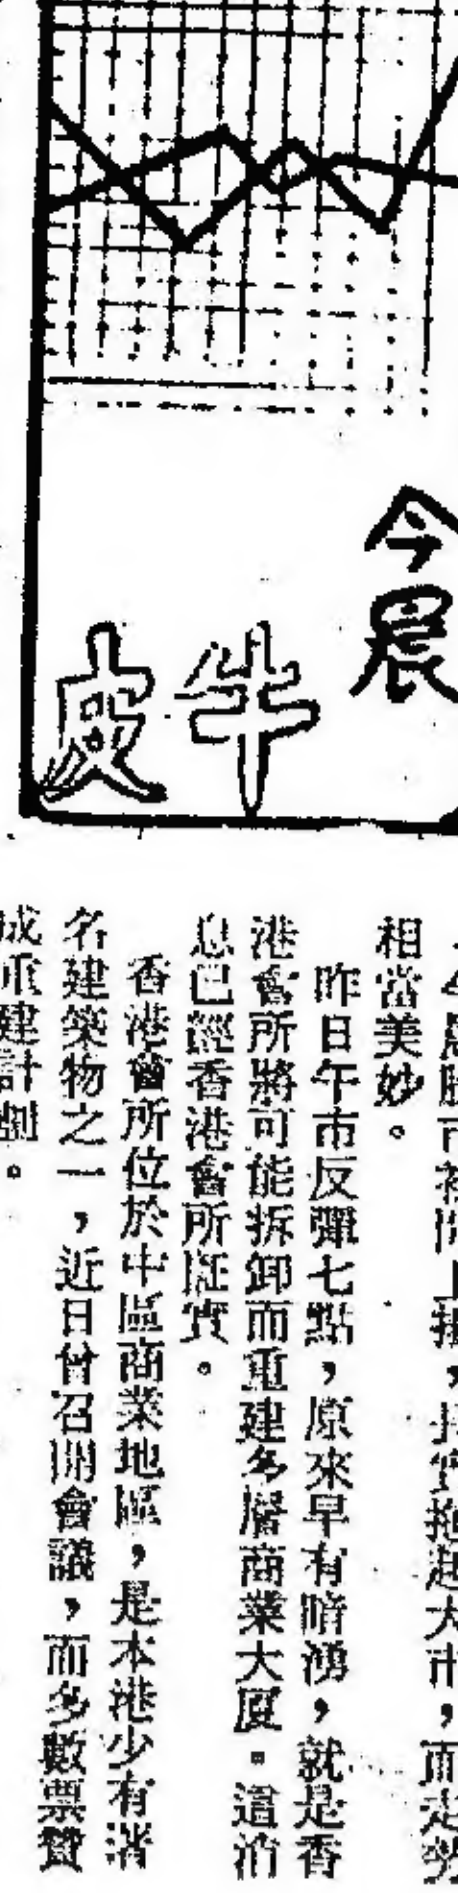 今晨
牛皮
相當美妙。
昨日午市反彈七點，原來早有暗湧，就是香
港會所將可能拆卸而重建多層商業大厦。這消
息已經香港會所証實。
香港會所位於中區商業地區，是本港少有著
名建築物之一，近日曾召開會議，而多數票贊
成重建計劃。